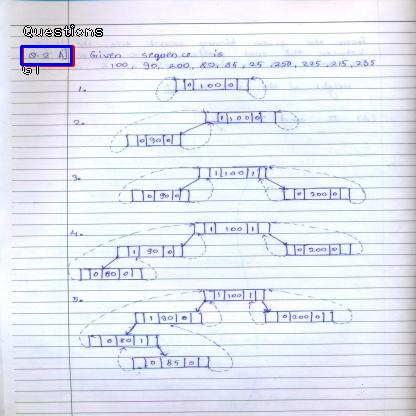 Questions
Q.2 A] Given sequence is
61
100, 90, 200, 80, 85, 25, 250, 225, 215, 235
1.
0 100 0
2.
1 100 0
0 90 0
3.
1 100 1
0 90 0
0 200 0
4.
1 100 1
1 90 0
0 200 0
0 80 0
5.
1 100 1
1 90 0
0 200 0
0 80 1
0 85 0